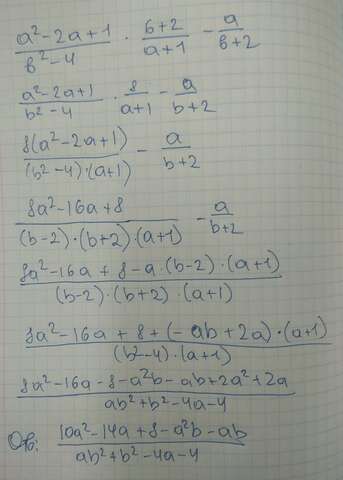 a² - 2a + 1 / в² - 4 · 6 + 2 / a + 1 - a / в + 2
a² - 2a + 1 / b² - 4 · 8 / a + 1 - a / b + 2
8(a² - 2a + 1) / (b² - 4) · (a + 1) - a / b + 2
8a² - 16a + 8 / (b - 2) · (b + 2) · (a + 1) - a / b + 2
8a² - 16a + 8 - a · (b - 2) · (a + 1) / (b - 2) · (b + 2) · (a + 1)
8a² - 16a + 8 + (-ab + 2a) · (a + 1) / (b² - 4) · (a + 1)
8a² - 16a - 8 - a²b - ab + 2a² + 2a / ab² + b² - 4a - 4
Отв: 10a² - 14a + 8 - a²b - ab / ab² + b² - 4a - 4